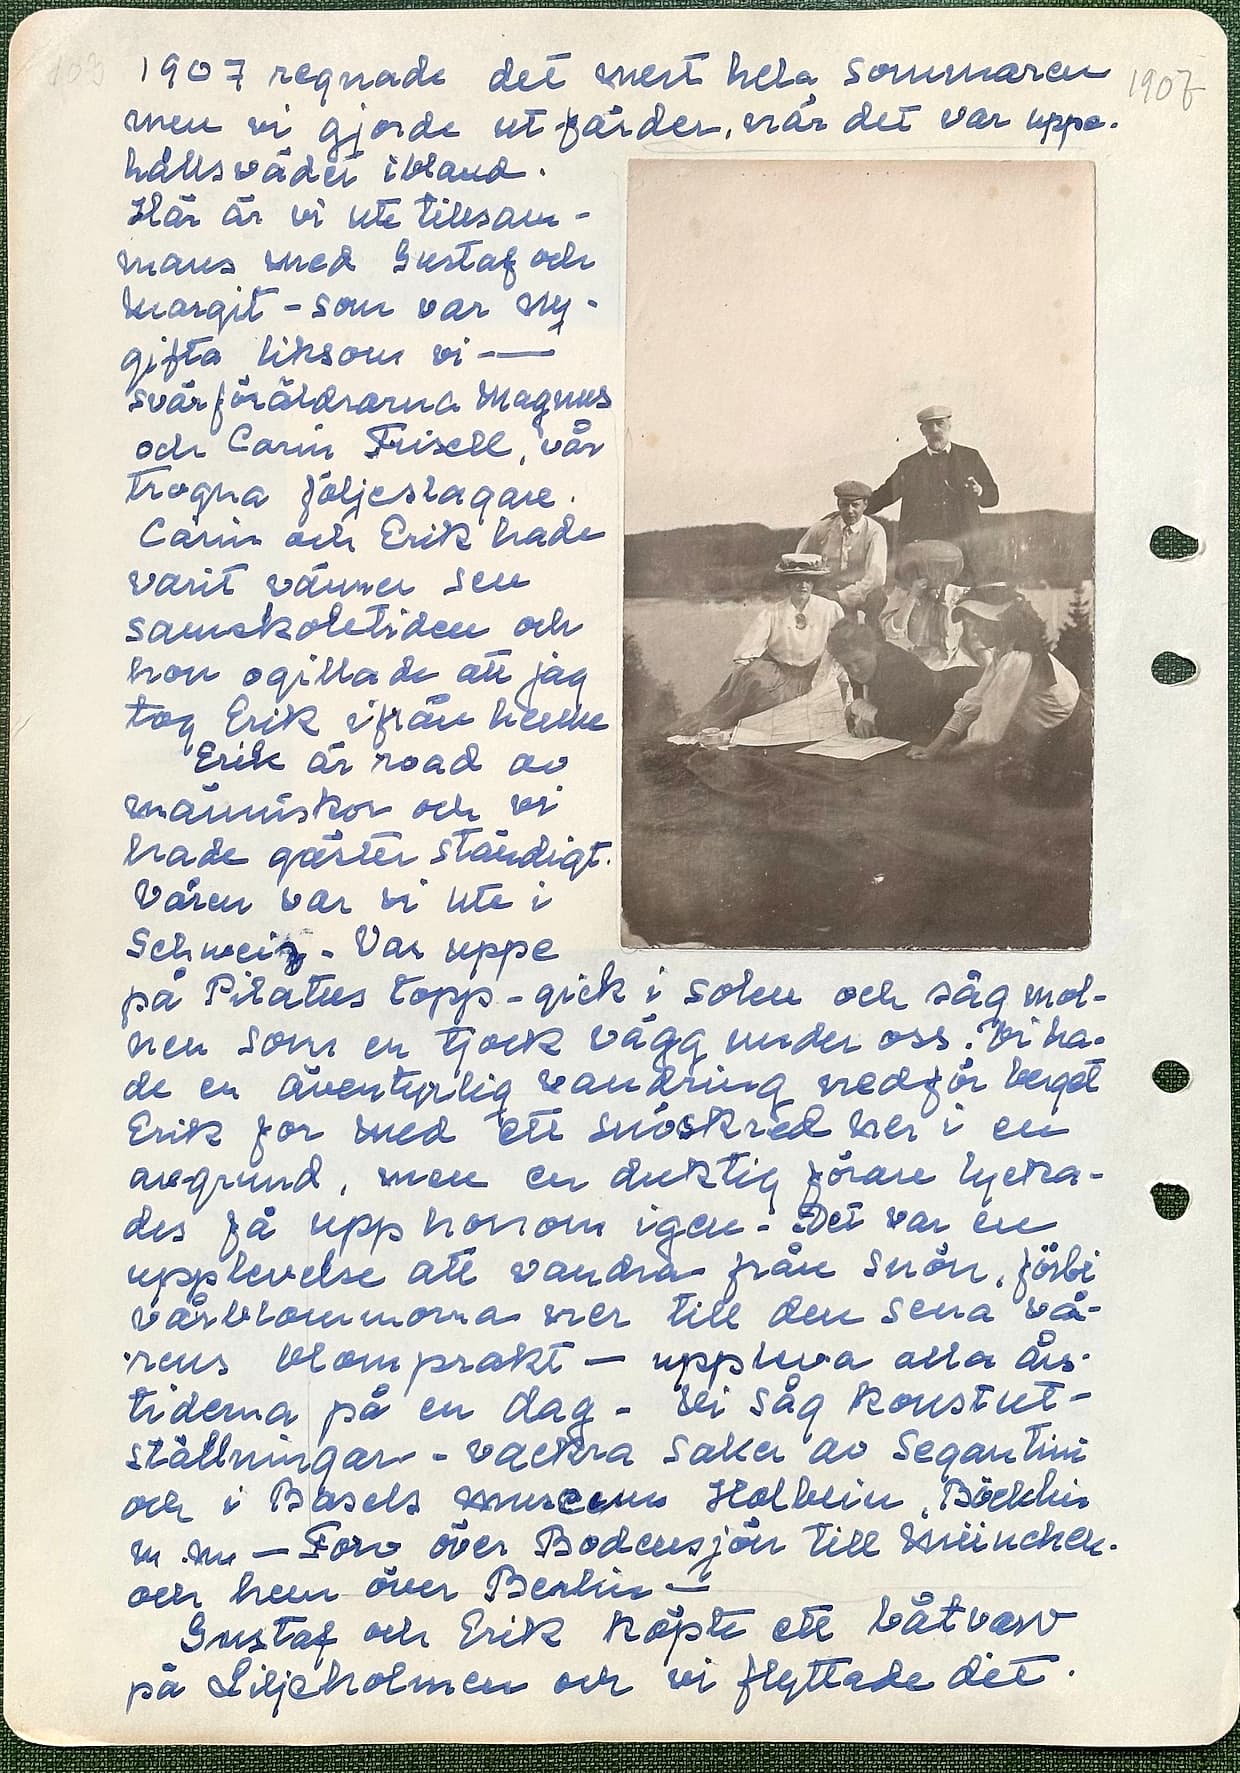 103
1907 regnade det mest hela sommaren
1907
men vi gjorde utfärder, när det var uppe-
hållsväder ibland.
Här är vi ute tillsam-
mans med Gustaf och
Margit - som var ny-
gifta liksom vi —
svärföräldrarna Magnus
och Carin Frisell, vår
trogna följeslagare.
Carin och Erik hade
varit vänner sen
samskoletiden och
hon ogillade att jag
tog Erik ifrån henne
Erik är road av
människor och vi
hade gäster ständigt.
Våren var vi ute i
Schweiz - Var uppe
på Pilatus topp - gick i solen och såg mol-
nen som en tjock vägg under oss. Vi ha-
de en äventyrlig vandring nedför berget
Erik for med ett snöskred ner i en
avgrund, men en duktig förare lycka-
des få upp honom igen - Det var en
upplevelse att vandra från snön, förbi
vårblommorna ner till den sena vå-
rens blomprakt — uppleva alla års-
tiderna på en dag - Vi såg konstut-
ställningar - vackra saker av Segantini
och i Basels museum Holbein, Böcklin
m.m — Foro över Bodensjön till München.
och hem över Berlin —
Gustaf och Erik köpte ett båtvarv
på Liljeholmen och vi flyttade det.